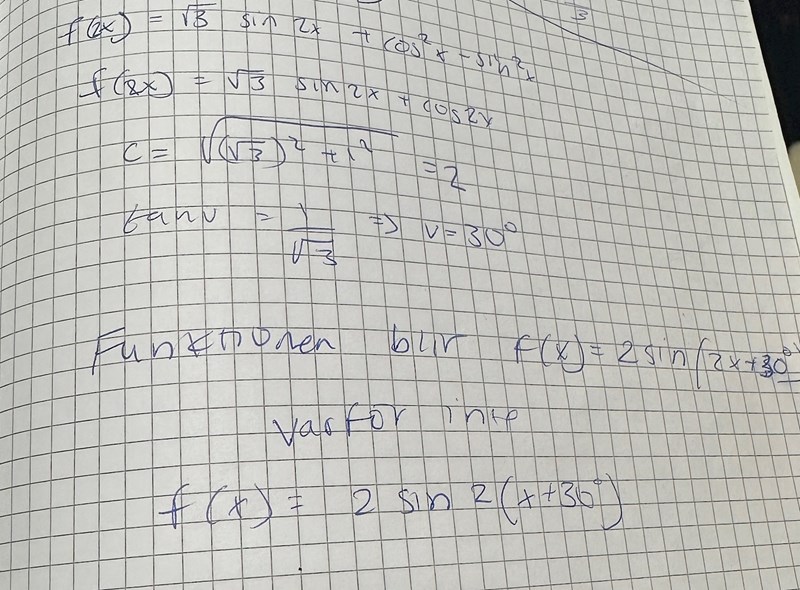 f(2x) = √3 sin 2x + cos²x - sin²x
f(2x) = √3 sin 2x + cos2x
C = √((√3)² + 1²) = 2
tan v = 1/√3 ⇒ v = 30°
Funktionen blir f(x) = 2 sin(2x+30°)
varför inte
f(x) = 2 sin 2(x+30°)